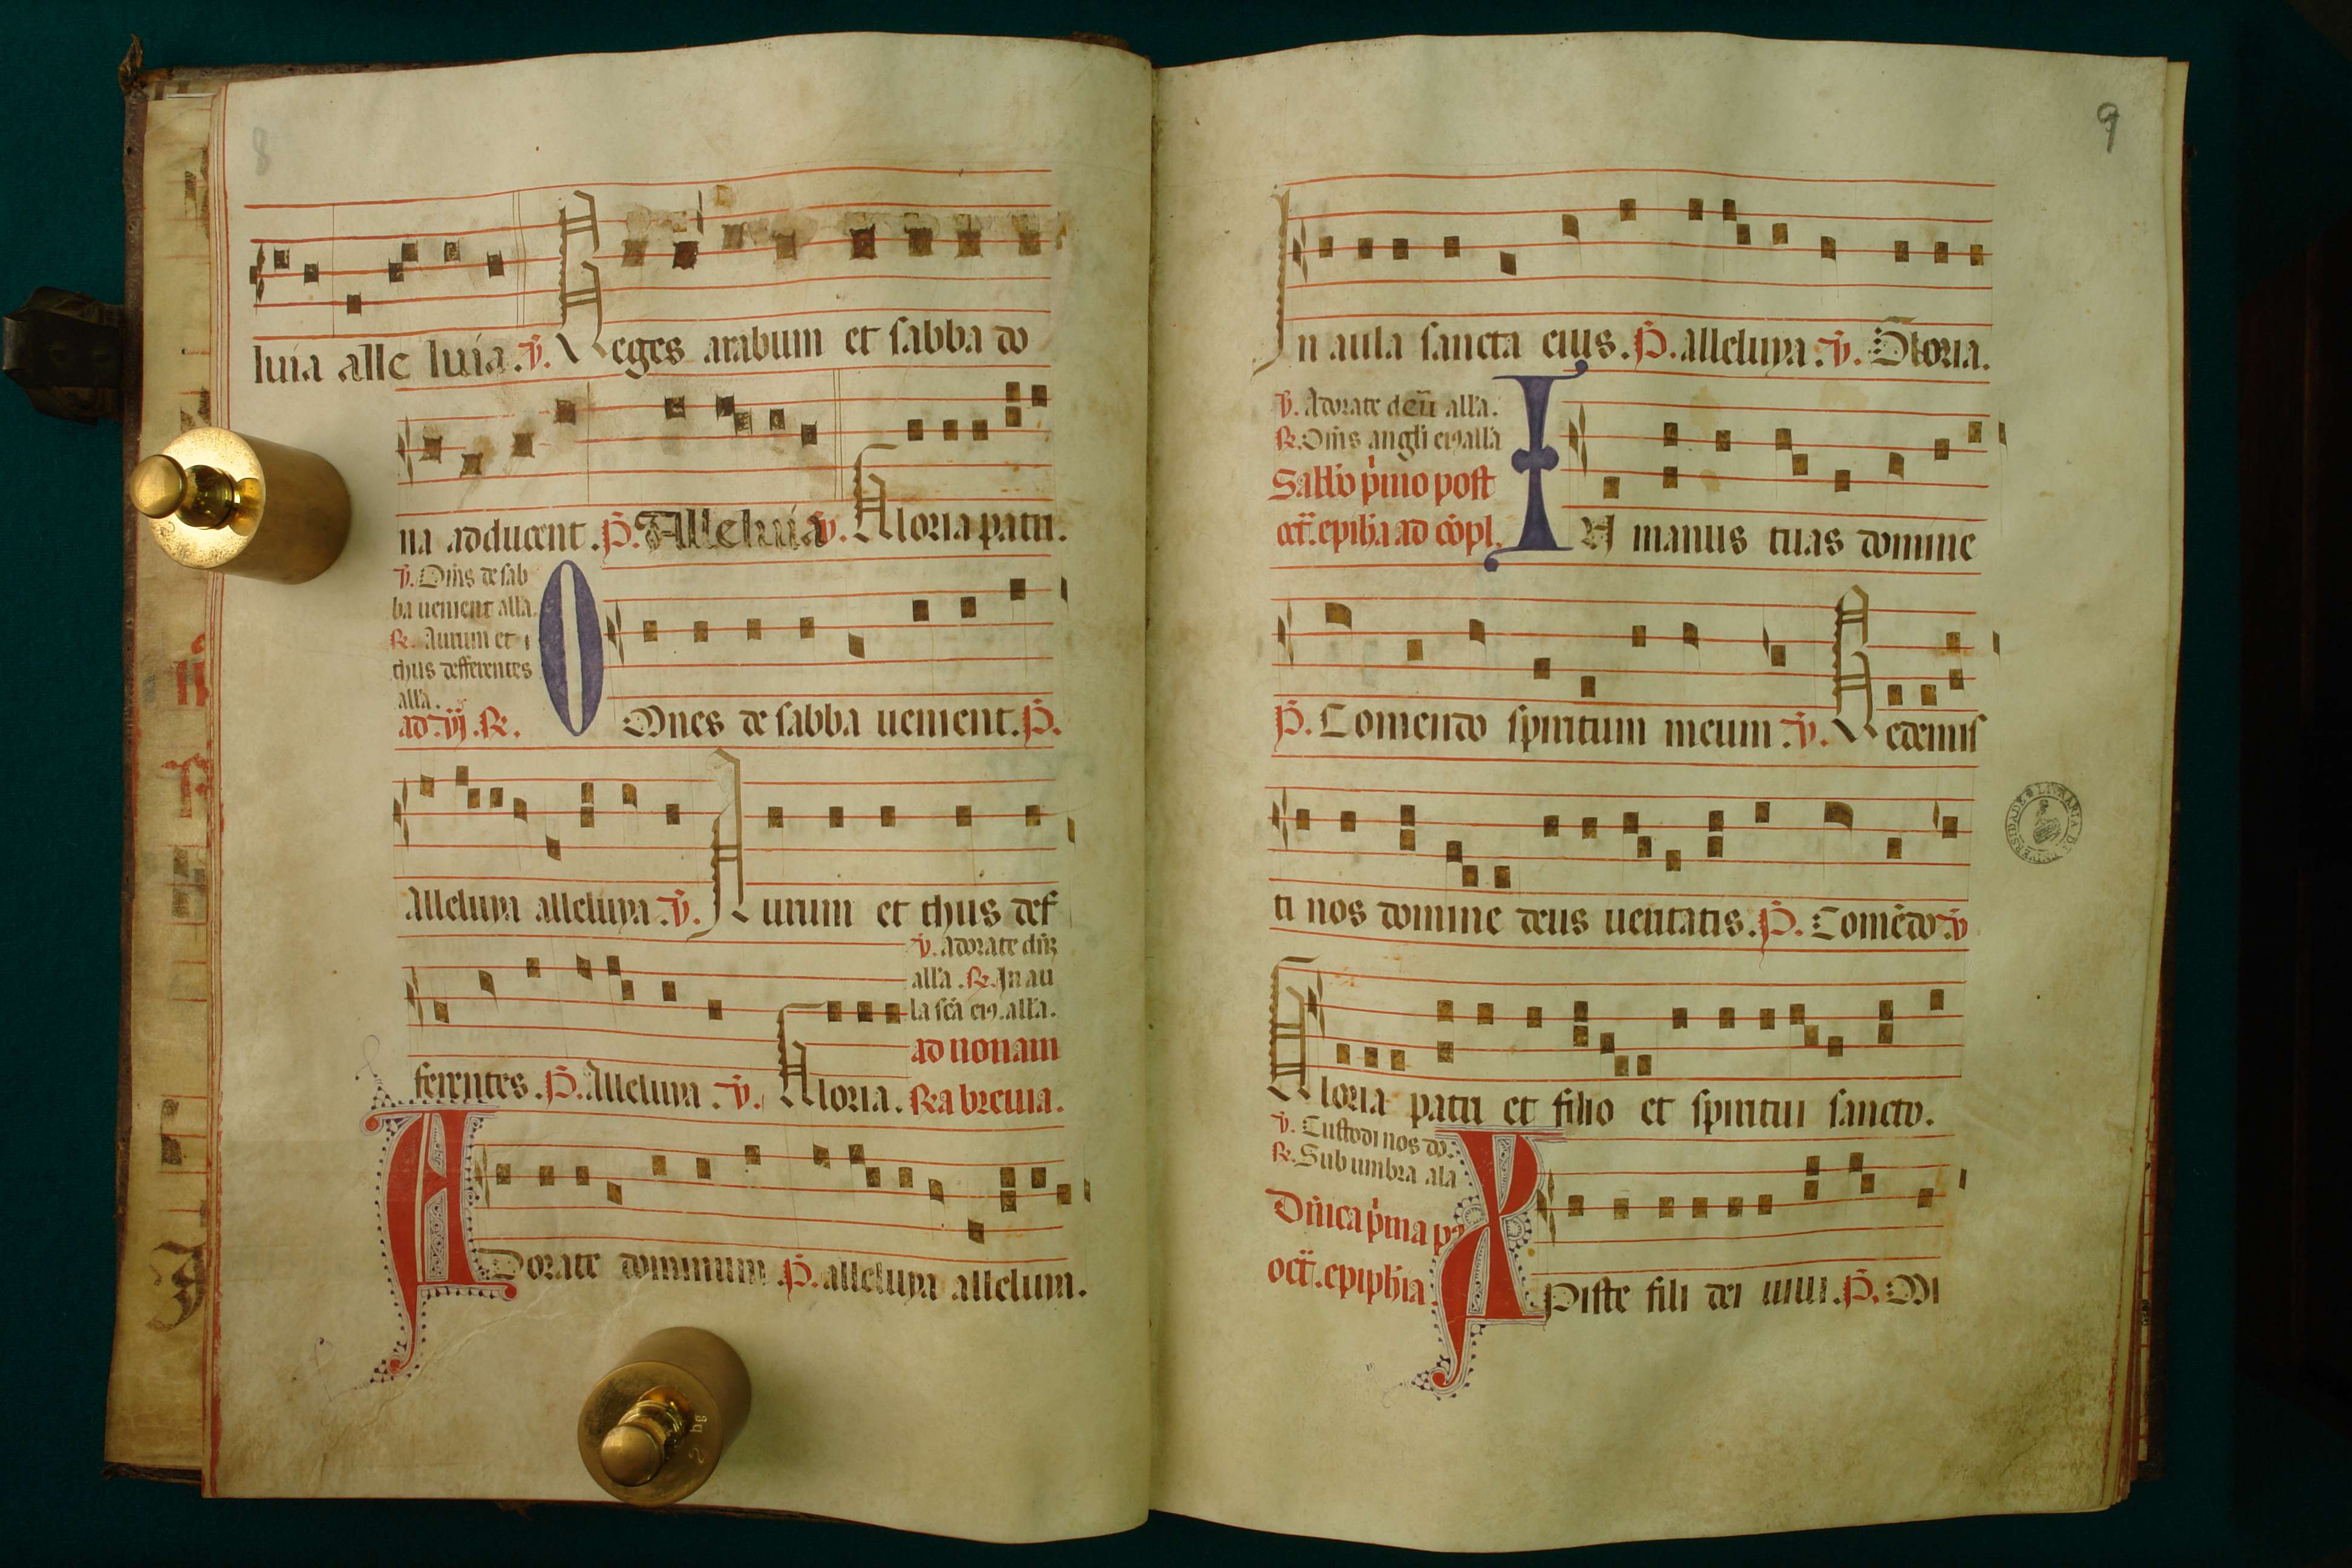 8
luia alle luia. ℣. Reges arabum et sabba do
na adducent. P̃. Alleluia ℣. Gloria patri.
℣. Om̃s de sab
ba uenient all'a.
℟. Aurum et
thus defferentes
all'a.
ad .vj. ℟.
OMnes de sabba uenient. P̃.
Alleluya alleluya. ℣. Aurum et thus def
ferentes. P̃. Alleluya. ℣. Gloria.
℣. adorate
all'a. ℟. In au
la sc̃a ei9. all'a.
ad nonam
℟a breuia.
ADorate dominum P̃. alleluya alleluya.
9
In aula sancta eius. P̃. alleluya. ℣. Gloria.
℣. Adorate deũ all'a.
℟. Om̃s angl'i ei9 all'a
Sabb'o p'mo post
oct̃. epiph'ia ad cõpl.
IN manus tuas domine
P̃. Comendo spiritum meum. ℣. Redemis
ti nos domine deus ueritatis. P̃. Comẽdo. ℣
Gloria patri et filio et spiritui sancto.
℣. Custodi nos do.
℟. Sub umbra ala
Dñica p'ma p9
oct̃. epiph'ia.
XPiste fili dei uiui. P̃. Mi
LIVRARIA DA UNIVERSIDADE
2 kg